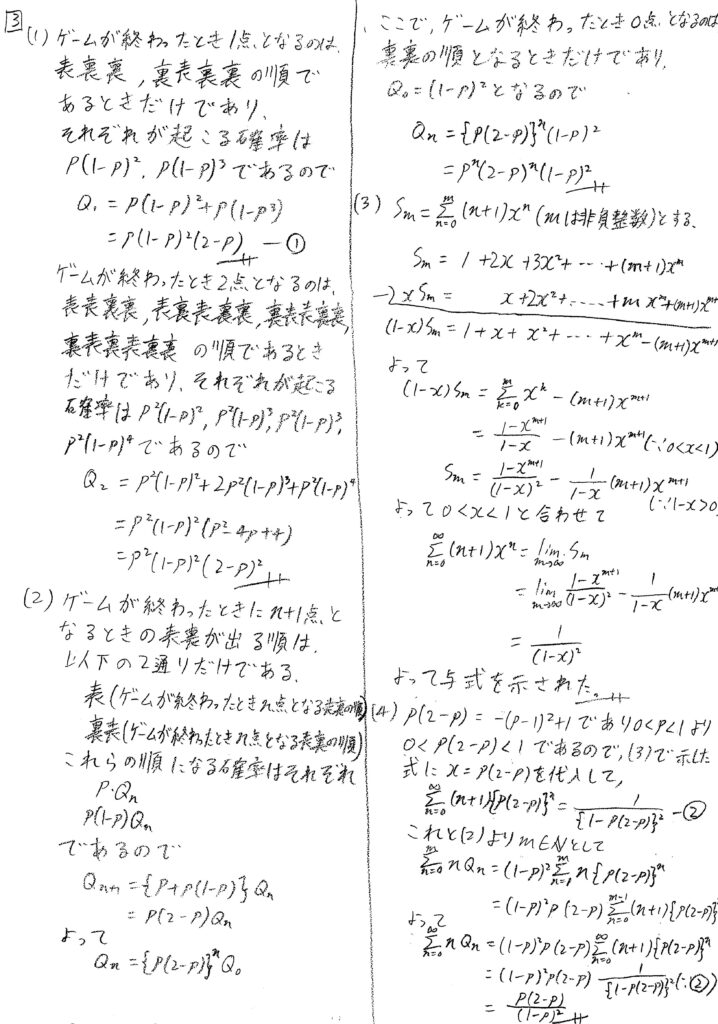 3
(1) ゲームが終わったとき1点となるのは、
表裏裏, 裏表裏裏の順で
あるときだけであり、
それぞれが起こる確率は
P(1-P)², P(1-P)³であるので
Q₁ = P(1-P)²+P(1-P³)
= P(1-P)²(2-P) ―①
ゲームが終わったとき2点となるのは、
表表裏裏, 表裏表裏裏, 裏表表裏裏,
裏表裏表裏裏 の順であるとき
だけであり、それぞれが起こる
確率はP²(1-P)², P²(1-P)³, P²(1-P)³,
P²(1-P)⁴であるので
Q₂ = P²(1-P)²+2P²(1-P)³+P²(1-P)⁴
= P²(1-P)²(P²-4P+4)
= P²(1-P)²(2-P)²
(2) ゲームが終わったときにn+1点と
なるときの表裏が出る順は、
以下の2通りだけである。
表(ゲームが終わったときn点となる表裏の順)
裏表(ゲームが終わったときn点となる表裏の順)
これらの順になる確率はそれぞれ
P・Qn
P(1-P)Qn
であるので
Qn+1 = {P+P(1-P)}Qn
= P(2-P)Qn
よって
Qn = {P(2-P)}ⁿQ₀
ここで、ゲームが終わったとき0点となるのは
裏裏の順となるときだけであり、
Q₀=(1-P)²となるので
Qn = {P(2-P)}ⁿ(1-P)²
= Pⁿ(2-P)ⁿ(1-P)²
(3) Sm = Σ[n=0→m](n+1)xⁿ (mは非負整数)とする。
Sm = 1+2x+3x²+‥‥+(m+1)xᵐ
-) xSm = x+2x²+‥‥+mxᵐ+(m+1)xᵐ⁺¹
(1-x)Sm = 1+x+x²+‥‥+xᵐ-(m+1)xᵐ⁺¹
よって
(1-x)Sm = Σ[k=0→m]xᵏ-(m+1)xᵐ⁺¹
= (1-xᵐ⁺¹)/(1-x) -(m+1)xᵐ⁺¹ (∵0<x<1)
Sm = (1-xᵐ⁺¹)/(1-x)² - 1/(1-x) (m+1)xᵐ⁺¹
(∵1-x>0)
よって0<x<1と合わせて
Σ[n=0→∞](n+1)xⁿ = lim[m→∞] Sm
= lim[m→∞] (1-xᵐ⁺¹)/(1-x)² - 1/(1-x) (m+1)xᵐ⁺¹
= 1/(1-x)²
よって与式を示された。
(4) P(2-P) = -(P-1)²+1であり0<P<1より
0<P(2-P)<1であるので、(3)で示した
式にx=P(2-P)を代入して、
Σ[n=0→∞](n+1){P(2-P)}ⁿ = 1/{1-P(2-P)}² ―②
これと(2)よりm∈Nとして
Σ[n=0→m]nQn = (1-P)²Σ[n=1→m]n{P(2-P)}ⁿ
= (1-P)²P(2-P)Σ[n=0→m-1](n+1){P(2-P)}ⁿ
よって
Σ[n=0→∞]nQn = (1-P)²P(2-P)Σ[n=0→∞](n+1){P(2-P)}ⁿ
= (1-P)²P(2-P) 1/{1-P(2-P)}² (∵②)
= P(2-P)/(1-P)²